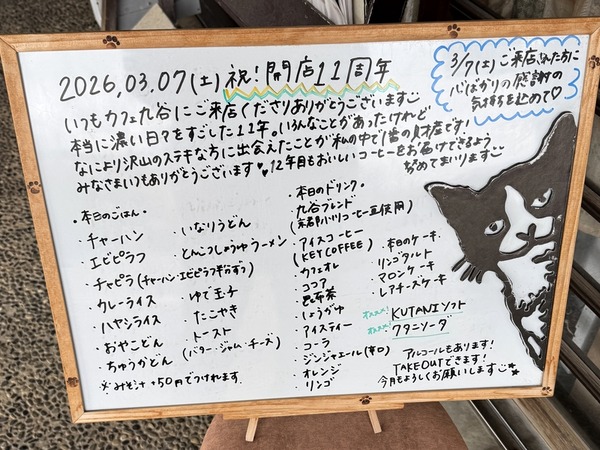 2026.03.07(土) 祝!開店11周年
3/7(土)ご来店された方に
心ばかりの感謝の
気持ちを込めて♡
いつもカフェ九谷にご来店くださりありがとうございます
本当に濃い日々をすごした11年。いろんなことがあったけれど
なにより沢山のステキな方に出会えたことが私の中で1番の財産です!
みなさまいつもありがとうございます♥ 12年目もおいしいコーヒーをお届けできるよう
努めてまいります
・本日のごはん・
・チャーハン
・エビピラフ
・チャピラ(チャーハン・エビピラフ半分ずつ)
・カレーライス
・ハヤシライス
・おやこどん
・ちゅうかどん
※みそ汁+50円でつけれます。
・いなりうどん
・とんこつしょうゆラーメン
・ゆで玉子
・たこやき
・トースト
(バター・ジャム・チーズ)
・本日のドリンク・
・九谷ブレンド
・アイスコーヒー
(KEY COFFEE)
・カフェオレ
・ココア
・昆布茶
・しょうがゆ
・アイスティー
・コーラ
・ジンジャエール(辛口)
・オレンジ
・リンゴ
・本日のケーキ・
・リンゴタルト
・マロンケーキ
・レアチーズケーキ
KUTANIソフト
・クタニソーダ
アルコールもあります!
TAKEOUTできます!
今月もよろしくお願いします